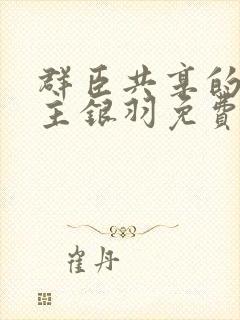 群臣共享的
主银羽免費
崔丹